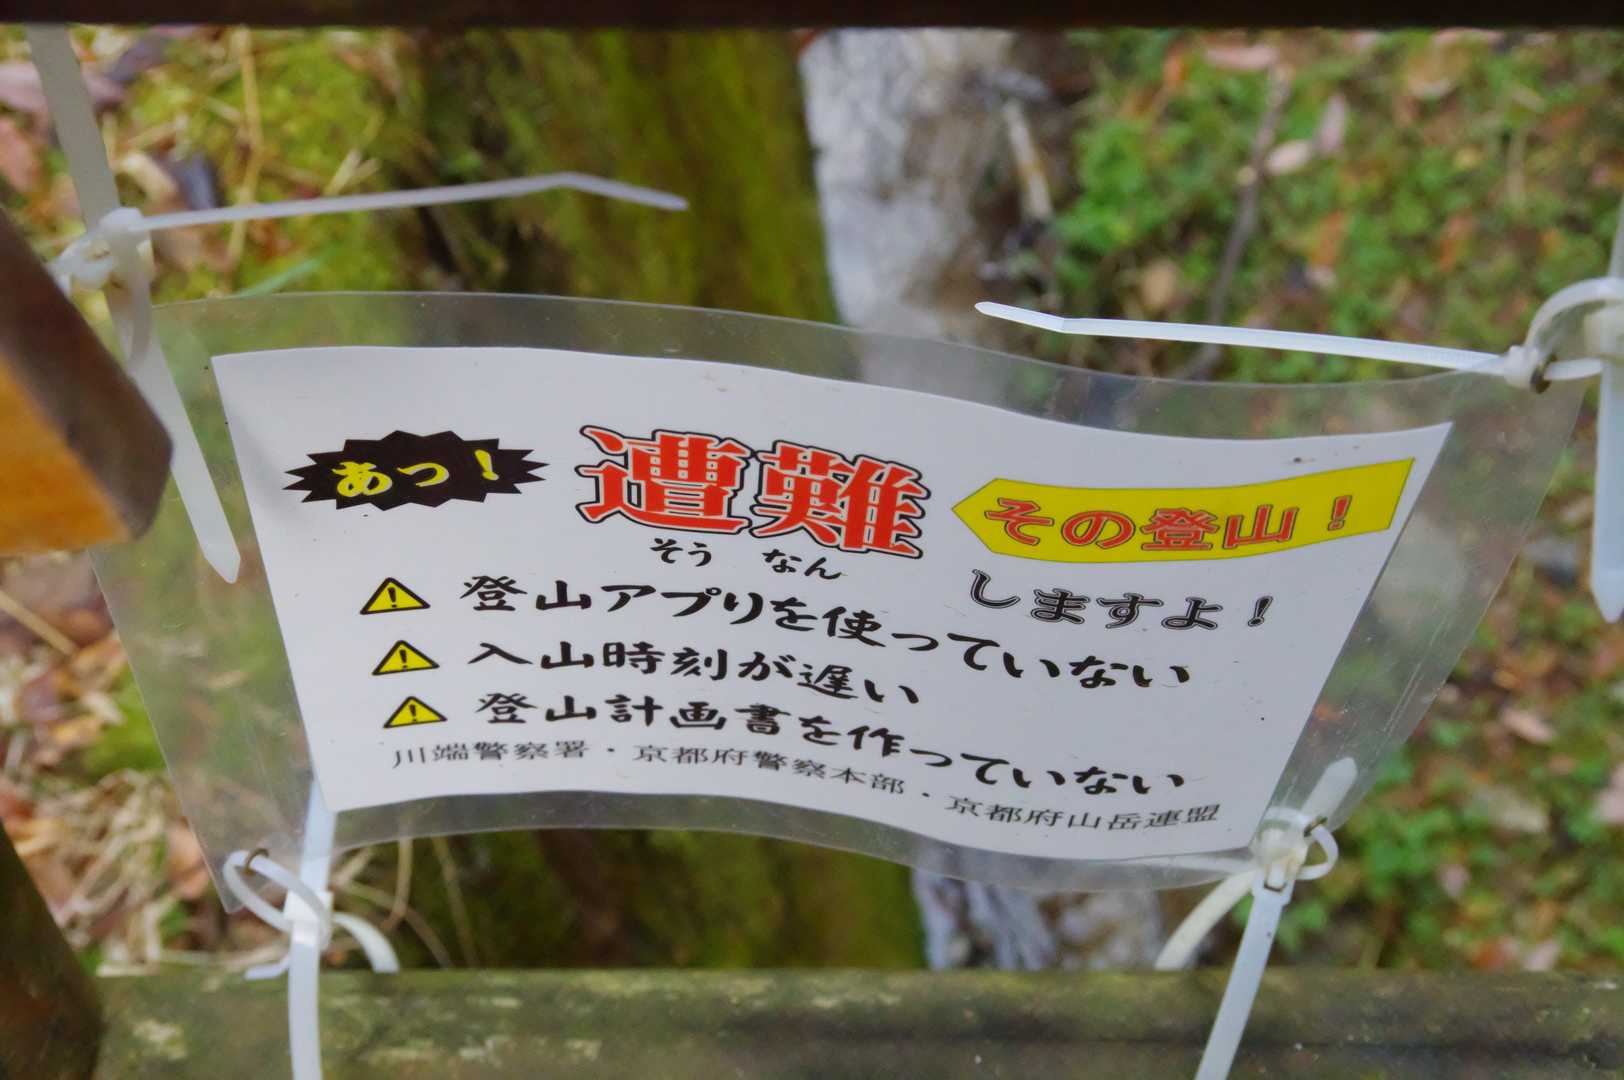 あっ!
その登山!
遭難
そうなん
しますよ!
登山アプリを使っていない
入山時刻が遅い
登山計画書を作っていない
川端警察署・京都府警察本部・京都府山岳連盟